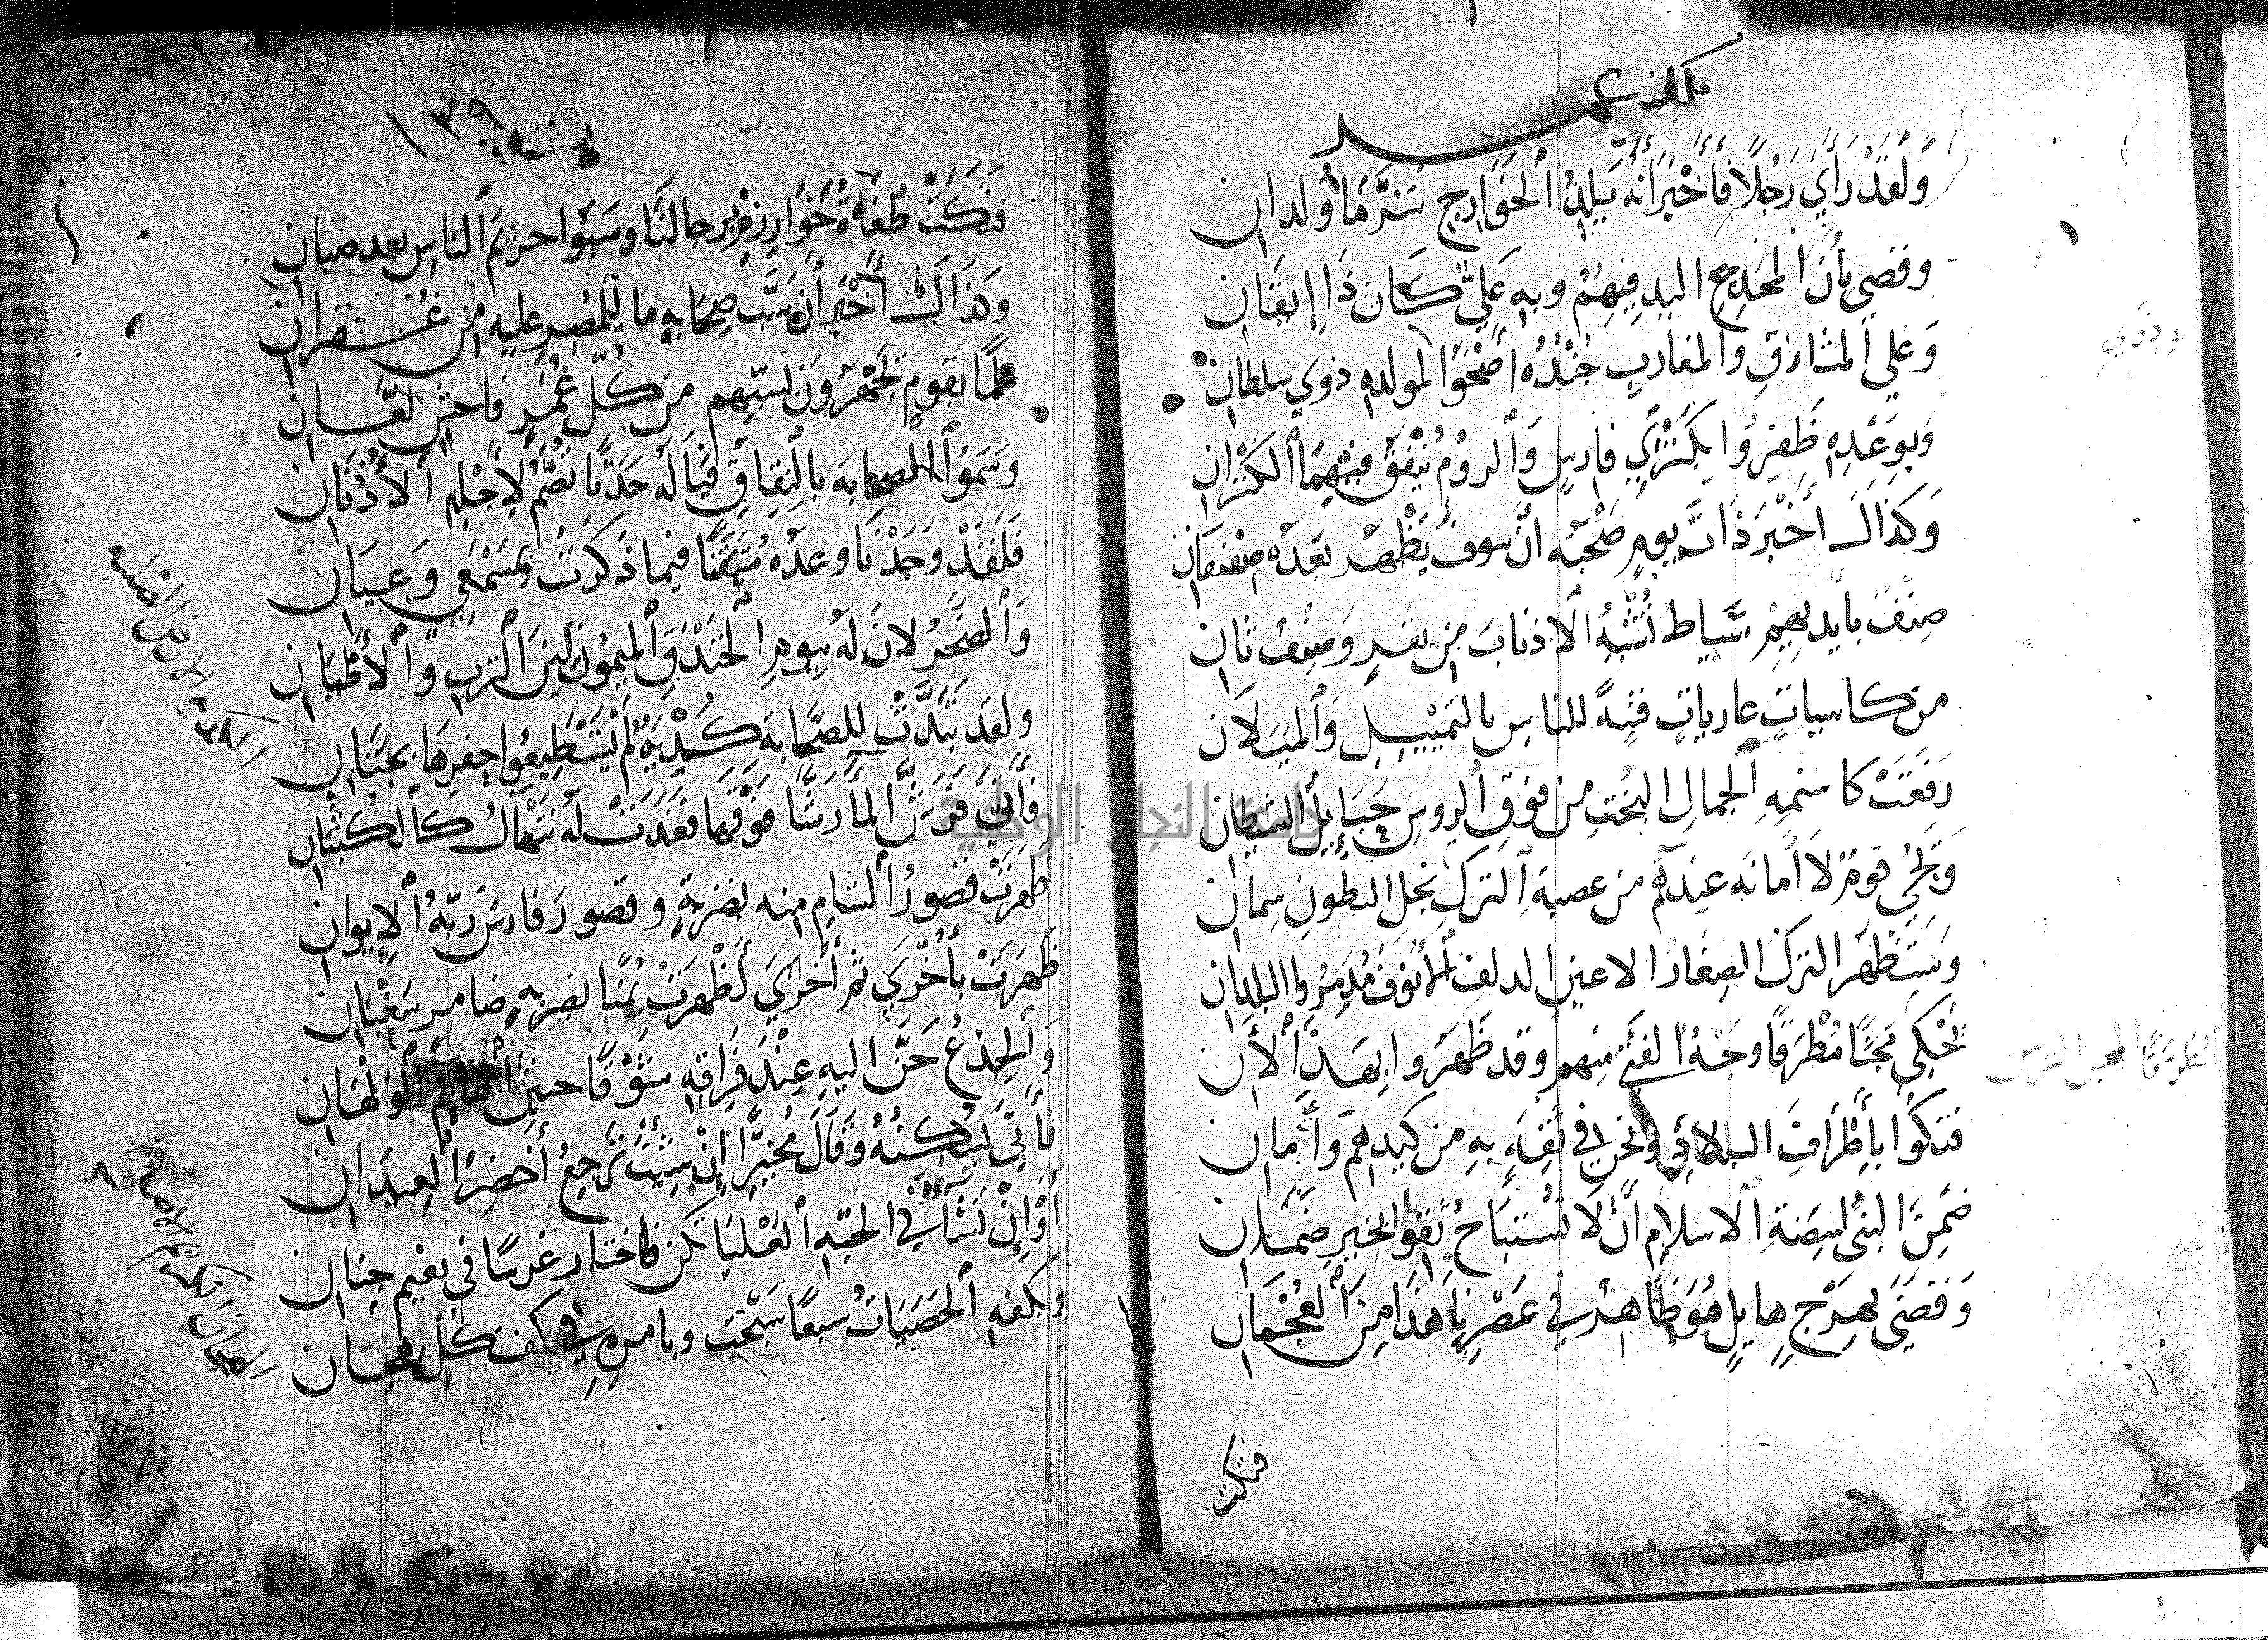 وَلَقَدْ رَأَي رَجُلًا فَأَخْبَرَ أَنَّه يَلِدُ اَلْخَوَارِجِ شَرَّ مَا وِلدان
وقضي بأَنَّ المخدع اليد فِيهِمُ وبِهِ عَلِيٌّ كَانَ ذَا إِيقَانِ
وَعلي اَلمشارقِ وَالمغاربِ جُنْدُهُ أَضْحَوْا لموعده ذوي سلطان
وَبِوَعْدِهِ ظَفِرُوا بِكَنْزَيْ فارسٍ وَاَلرومُ يُنْفَقُ فِيهِمَا اَلكَنْزانِ
وَكَذاكَ أَخْبَرَ ذَاتَ يومٍ صَحْبَه أَنْ سوفَ يَظْهر بَعدَه صِنْفَانِ
صِنْفٌ بأَيديهِمْ سِياط تُشْبِهُ اَلاذنابَ مِن بقرٍ وَصِنْفٌ ثان
من كاسياتٍ عارياتٍ فتنةً للناسِ بالتمييلِ وَاَلميَلَانِ
رفعَتْ كاسنمةِ اَلجمالِ البُختِ من فوقِ الروسِ حَبَايِلُ الشيطان
وَيَجُي قومٌ لا أمانةَ عندهُم من عصبةِ اَلتركِ نُجْلُ البطونِ سِمان
وَسَتَظْهَر التركُ الصِغَارُ الاعينِ الدلف الأُنوفَ مُدَمِرُوا البلدان
يَحْكِي مِجَنًّا مُطْرَقًا وجْهُ الفتَى منهم وقد ظَهَروا بِهَذَا اَلأَنِ
فتكُوا بأَطْرافِ البلادِ ونحن في ثِقَةٍ بهِ من كيدِهمْ وأَمان
ضَمِنَ النبيُ لبيضةِ الاسلام أَنْ لَا تُسْتبَاحُ ثِقُوا بخيرِ ضَمَانِ
وَقضَى بهَرْجٍ هايلٍ هُوَ ظَاهرٌ في عَصْرِنا هَذَا مِنَ اَلعُجْمَانِ
فتكت
١٣٩
فَتَكَتْ طُغَاةُ خَوَارِزمٍ برجالنَا وسَبَوْا حريمَ اَلناسِ بعد صيان
وَكذَاكَ أَخْبَر أَن سَبَّ صِحَابِهِ ما لِلْمُصِرِ عليه مِن غُفران
عِلمًا بقومٍ يَجْهَرُونَ بسَبِّهِم من كُلِّ غُمْرٍ فاحشٍ لعَّان
وسَمَوُا الصحابة بالنِفَاقِ فيَا لَه حَدَثًا تصُمُّ لِأَجْلِهِ اَلأُذْنَانِ
فَلَقَدْ وَجَدْنَا وعدَه مُتَيَقَّنًا فيما ذَكَرْتُ بمَسْمَعِي وَعِيَانِ
وَاَلصَّخْرُ لانَ لَهُ بيومِ الخَنْدَقِ اَلميمُون لِينَ اَلتربِ وَاَلأَطْيَانِ
ولقد تَبَدَّتْ لِلصَّحَابةِ كُدْيةٌ لَمْ يَسْتَطِيعُوا حفرهَا بجَنَانِ
فأَتى فَرَشَّ الماءَ رشًّا فَوْقَها فغَدَتْ لَهُ تَنْهَالُ كَالكُثْبَانِ
ظَهَرَتْ قصورُ الشامِ منه بضربةٍ وقصورُ فارسَ ربَّةُ اَلإِيوانِ
ظَهَرَتْ بأُخْرَي ثمَّ أُخْرَيَ أَظْهَرَتْ يُمْنًا بضربةِ ضامرٍ سَغْبَانِ
وَاَلجِذْعُ حَنَّ اليهِ عِنْدَ فِرَاقِهِ شَوْقًا حنين اَلهايم اَلوَلْهَانِ
فأَتَى يُسَكِّنُهُ وَقَالَ مُخَيِّرًا إِنْ شِئْتَ تَرْجِعُ أَخضرَ اَلعيدان
أَوْ إِنْ تَشَأْ في الجنةِ اَلعَلْيَا تكُن فاختار غرسًا في نعيم جنان
وبكفهِ اَلحَصَيَاتُ سبعًا سَبَّحت وبامرهِ في كف كُلِّ هجان